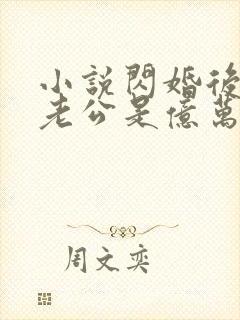 小説閃婚後
老公是億萬
周文奕